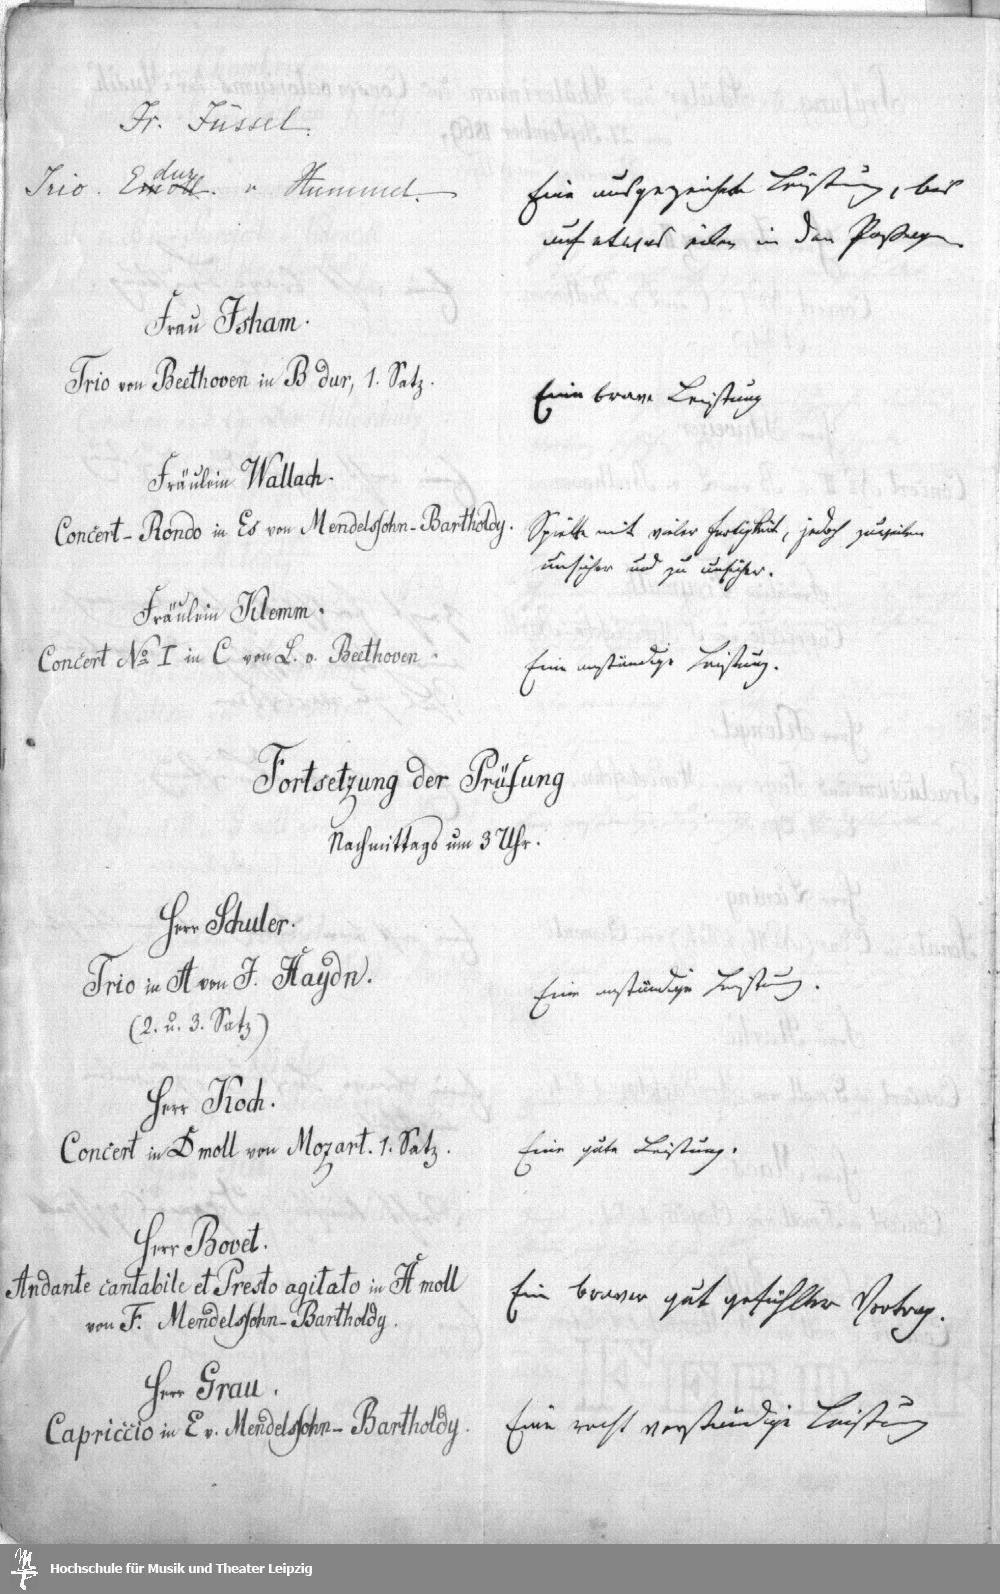 Fr. Füssel.
Trio. E moll dur. v Hummel.
Eine ausgezeichnete Leistung, bis
auf etwas eilen in den Passagen.
Frau Isham.
Trio von Beethoven in B dur, 1. Satz.
Eine brave Leistung
Fräulein Wallach.
Concert-Rondo in Es von Mendelssohn-Bartholdy.
Spielte mit vieler Fertigkeit, jedoch zuweilen
unsicher und zu unsicher.
Fräulein Klemm.
Concert No I in C von L. v. Beethoven.
Eine anständige Leistung.
Fortsetzung der Prüfung
Nachmittags um 3 Uhr.
Herr Schuler.
Trio in A von J. Haydn.
(2. u. 3. Satz)
Eine anständige Leistung.
Herr Koch.
Concert in D moll von Mozart. 1. Satz.
Eine gute Leistung.
Herr Bovet.
Andante cantabile et Presto agitato in H moll
von F. Mendelssohn-Bartholdy.
Ein braver gut gefühlter Vortrag.
Herr Grau.
Capriccio in E v. Mendelssohn-Bartholdy.
Eine recht verständige Leistung
Hochschule für Musik und Theater Leipzig